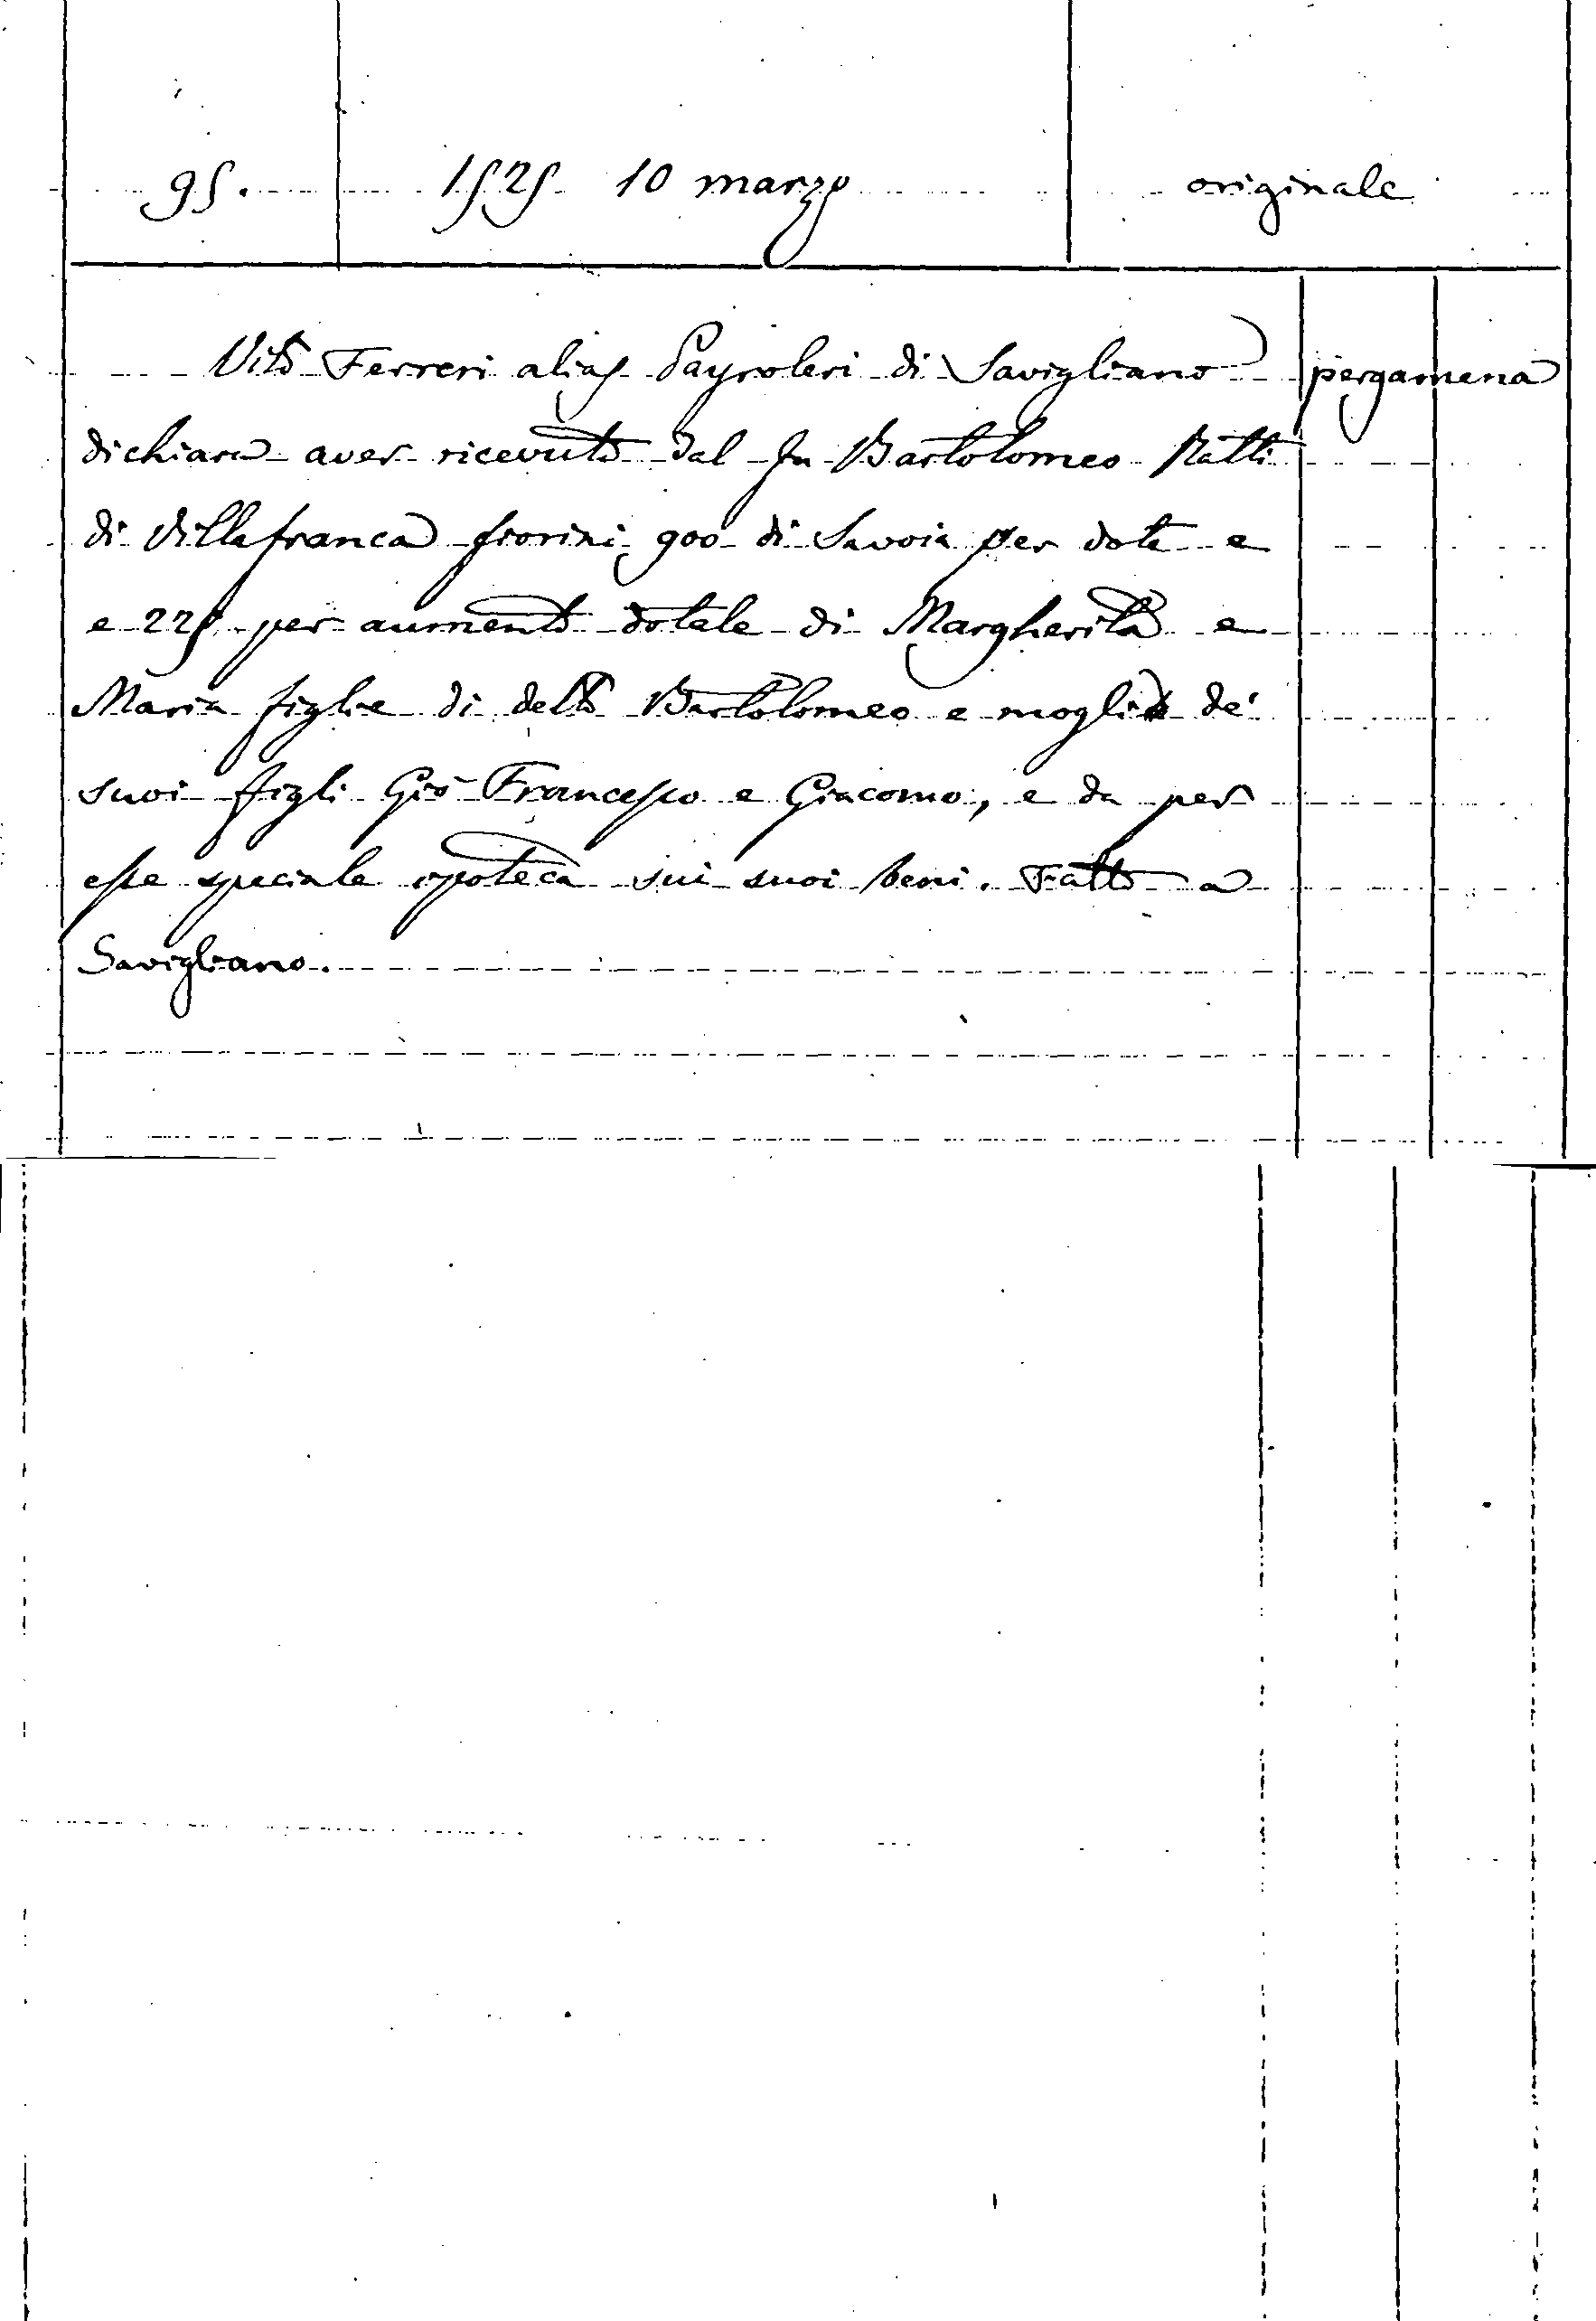 95. 1525 10 marzo originale
Vito Ferreri alias Payroleri di Savigliano pergamena
dichiara aver ricevuto dal fu Bartolomeo Ratti
di Villafranca fiorini 900 di Savoia per dote e
e 225 per aumento dotale di Margherita e
Maria figlie di detto Bartolomeo e mogli de'
suoi figli Gio Francesco e Giacomo, e da per
esse speciale ipoteca sui suoi beni. Fatto a
Savigliano.